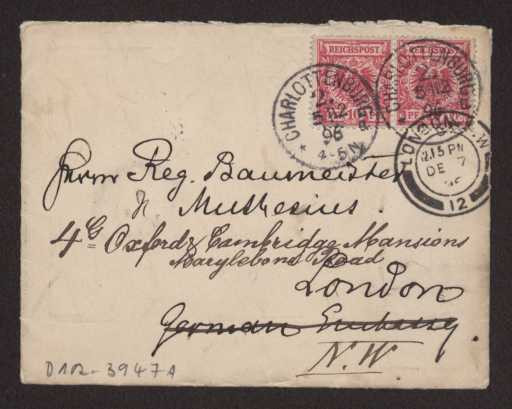 REICHSPOST REICHSPOST
CHARLOTTENBURG
5 12
96
4-5N
CHARLOTTENBURG
5 12
96
LONDON N.W
2.15 PM
DE 7
96
12
Herrn Reg. Baumeister
Muthesius.
4G Oxford & Cambridge Mansions
Marylebone Road
London
German Embassy.
N.W
D102-3947A